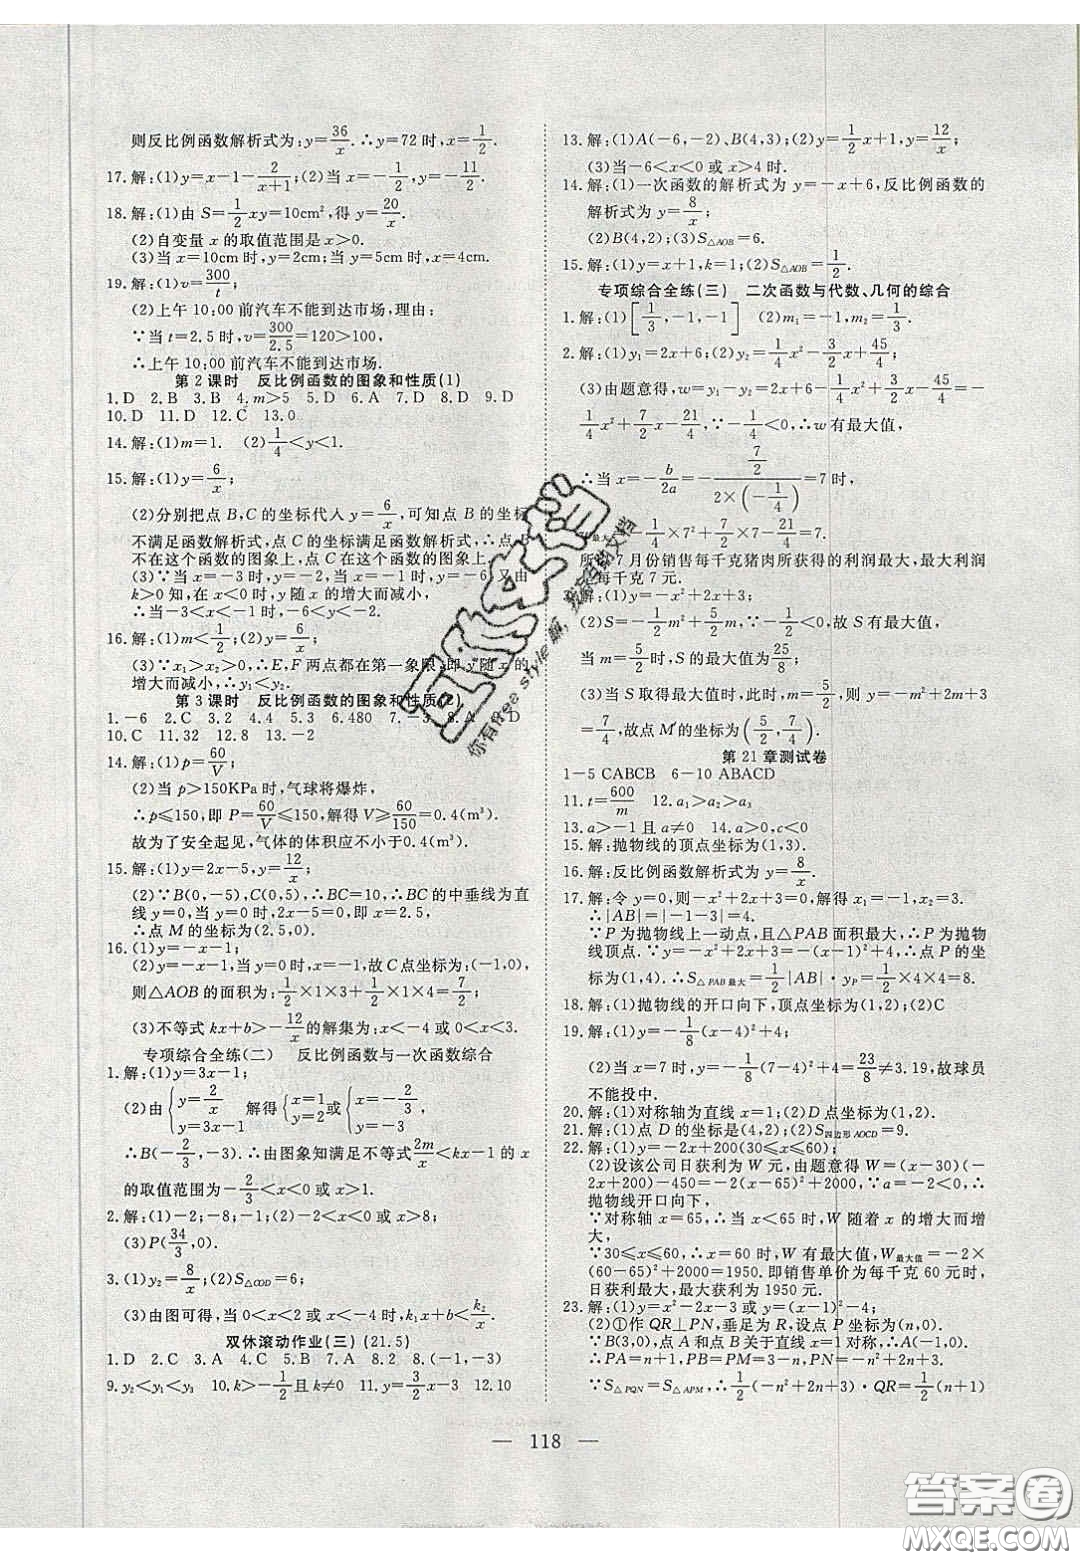 则反比例函数解析式为:y=36/x.∴y=72时,x=1/2.
17.解:(1)y=x-1-2/(x+1);(2)当x=-1/2时,y=-11/2.
18.解:(1)由S=1/2xy=10cm²,得y=20/x.
(2)自变量x的取值范围是x>0.
(3)当x=10cm时,y=2cm;当y=5cm时,x=4cm.
19.解:(1)v=300/t;
(2)上午10:00前汽车不能到达市场.
∵当t=2.5时,v=300/2.5=120>100,
∴上午10:00前汽车不能到达市场.
第2课时 反比例函数的图象和性质(1)
1.D 2.B 3.B 4.m>5 5.D 6.A 7.D 8.D 9.D
10.D 11.D 12.C 13.0
14.解:(1)m=1. (2)1/4<y<1.
15.解:(1)y=6/x;
(2)分别把点B,C的坐标代入y=6/x,可知点B的坐标
不满足函数解析式,点C的坐标满足函数解析式,
不在这个函数的图象上,点C在这个函数的图象上.
(3)∵当x=-3时,y=-2,当x=-1时,y=-6,又由
k>0知,在x<0时,y随x的增大而减小,
∴当-3<x<-1时,-6<y<-2.
16.解:(1)m<1/2;(2)y=6/x;
(3)∵x₁>x₂>0,∴E,F两点都在第一象限,即y随x的
增大而减小,∴y₁<y₂.
第3课时 反比例函数的图象和性质(2)
1.-6 2.C 3.2 4.4 5.3 6.480 7.-3 8.4 D
10.C 11.32 12.8 13.-2
14.解:(1)p=60/V;
(2)当p>150KPa时,气球将爆炸,
∴p≤150,即P=60/V≤150,解得V≥60/150=0.4(m³).
故为了安全起见,气体的体积应不小于0.4(m³).
15.解:(1)y=2x-5,y=12/x;
(2)∵B(0,-5),C(0,5),∴BC=10,∴BC的中垂线为直
线y=0,当y=0时,2x-5=0,即x=2.5,
∴点M的坐标为(2.5,0).
16.(1)y=-x-1;
(2)当y=0时,-x-1=0,x=-1,故C点坐标为(-1,0),
则△AOB的面积为:1/2×1×3+1/2×1×4=7/2;
(3)不等式kx+b>-12/x的解集为:x<-4或0<x<3.
专项综合全练(二) 反比例函数与一次函数综合
1.解:(1)y=3x-1;
(2)由{y=2/x y=3x-1 解得{x=1 y=2或{x=-2/3 y=-3
∴B(-2/3,-3).由图象知满足不等式2m/x<kx-1的x
的取值范围为-2/3<x<0或x>1.
2.解:(1)-2;-8;-1;(2)-2<x<0或x>8;
(3)P(34/3,0).
3.(1)y₂=8/x;(2)S△COD=6;
(3)由图可得,当0<x<2或x<-4时,k₁x+b<k₂/x.
双休滚动作业(三)(21.5)
1.D 2.C 3.A 4.C 5.B 7.A 8.2 8.(-1,-3)
9.y₂<y₁<y₃ 10.k>-1/2且k≠0 11.y=3/2x-3 12.10
13.解:(1)A(-6,-2)、B(4,3);(2)y=1/2x+1,y=12/x;
(3)当-6<x<0或x>4时.
14.解:(1)一次函数的解析式为y=-x+6,反比例函数的
解析式为y=8/x;
(2)B(4,2);(3)S△AOB=6.
15.解:(1)y=x+1,k=1;(2)S△AOB=1/2.
专项综合全练(三) 二次函数与代数、几何的综合
1.解:(1)[1/3,-1,-1] (2)m₁=-1,m₂=1/2
2.解:(1)y₁=-x+6;(2)y₂=1/4x²-3/2x+45/4
(3)由题意得,w=y₁-y₂=-x+6-1/4x²+3/2x-45/4=-
1/4x²+7/2x-21/4,∵-1/4<0,∴w有最大值,
∴当x=-b/2a=-(7/2)/(2×(-1/4))=7时,
最大=-1/4×7²+7/2×7-21/4=7.
所 7月份销售每千克猪肉所获得的利润最大,最大利润
每千克7元.
3.解:(1)y=-x²+2x+3;
(2)S=-1/2m²+5/2m,∵-1/2<0,故S有最大值,
当m=5/2时,S的最大值为25/8;
(3)当S取得最大值时,此时,m=5/2,则y=-m²+2m+3
=7/4,故点M′的坐标为(5/2,7/4).
第21章测试卷
1-5 CABCB 6-10 ABACD
11.t=600/m 12.a₁>a₂>a₃
13.a>-1且a≠0 14.a>0,c<0
15.解:抛物线的顶点坐标为(1,3).
16.解:反比例函数解析式为y=8/x.
17.解:令y=0,则-x²+2x+3=0,解得x₁=-1,x₂=3.
∴|AB|=|-1-3|=4.
∵P为抛物线上一动点,且△PAB面积最大,∴P为抛物
线顶点.∵y=-x²+2x+3=-(x-1)²+4,∴点P的坐
标为(1,4).∴S△PAB最大=1/2|AB|·yP=1/2×4×4=8.
18.解:(1)抛物线的开口向下,顶点坐标为(1,2);(2)C
19.解:(1)y=-1/8(x-4)²+4;
(2)当x=7时,y=-1/8(7-4)²+4=23/8≠3.19,故球员
不能投中.
20.解:(1)对称轴为直线x=1;(2)D点坐标为(1,2).
21.解:(1)点D的坐标是(4,2);(2)S四边形AOCD=9.
22.解:(1)y=-2x+200(30≤x≤60);
(2)设该公司日获利为W元,由题意得W=(x-30)(-
2x+200)-450=-2(x-65)²+2000,∵a=-2<0,∴
抛物线开口向下,
∵对称轴x=65,∴当x<65时,W随着x的增大而增
大,
∵30≤x≤60,∴x=60时,W有最大值,W最大值=-2×
(60-65)²+2000=1950.即销售单价为每千克60元时,
日获利最大,最大获利为1950元.
23.解:(1)y=x²-2x-3,y=(x-1)²-4;
(2)①作QR⊥PN,垂足为R,设点P坐标为(n,0)
∵B(3,0),点A和点B关于直线x=1对称,∴A(-1,0),
∴PA=n+1,PB=PM=3-n,PN=-n²+2n+3.
∵S△PQN=S△APM,∴1/2(-n²+2n+3)·QR=1/2(n+1)
— 118 —
答案圈
MXQE.COM